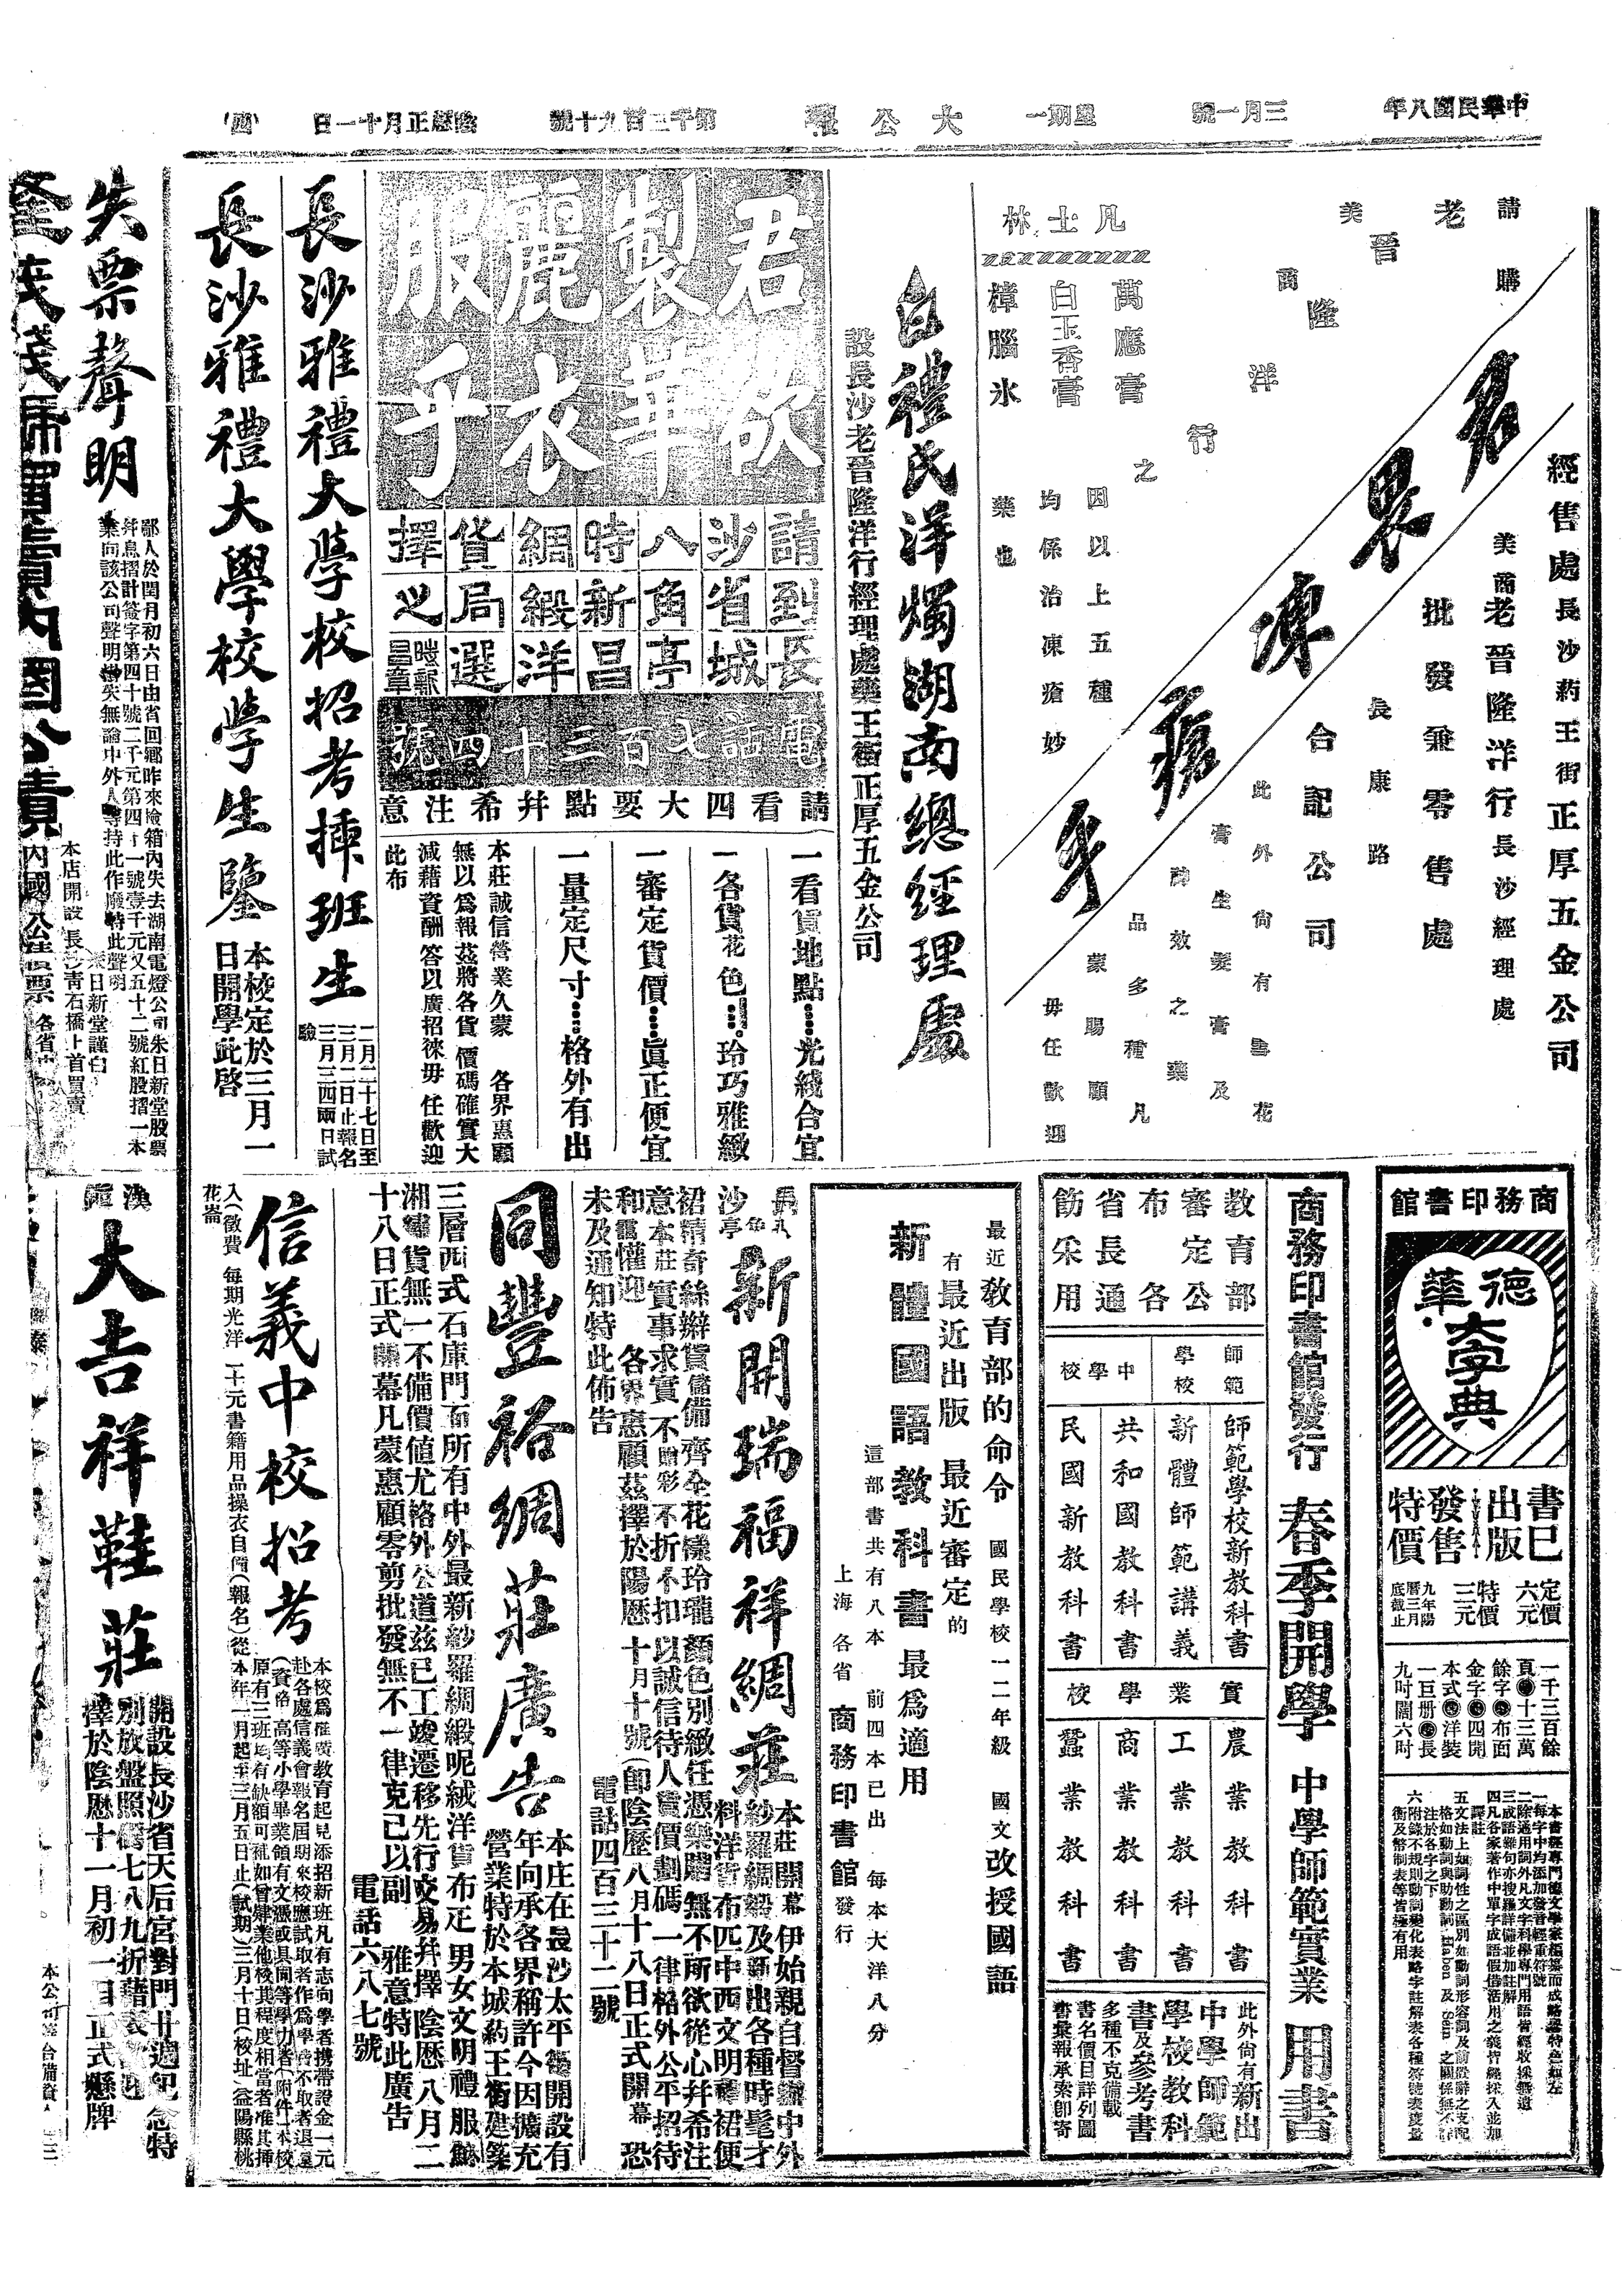 中華民國八年
三月一號
星期一
大公報
第千二百九十號
陰曆正月十一日
(四)
請購
美商老晉隆洋行之
君畏凍瘡乎
凡士林
萬應膏
白玉香膏
樟腦氷
因以上五種
均係治凍瘡妙
藥也
此外尙有雪花
膏生髮膏及
諸效之藥
品多種凡
蒙賜顧
毋任歡迎
經售處長沙葯王街正厚五金公司
美商老晉隆洋行長沙經理處
批發兼零售處
長康路
合記公司
白禮氏洋燭湖南總經理處
設長沙老晉隆洋行經理處藥王街正厚五金公司
君製麗服
欲華衣乎
請到長
沙省城
八角亭
時新昌
綢緞洋
貨局選
擇之
電話七百三十四號
請看四大要點幷希注意
一看貨地點……光綫合宜
一各貨花色……玲巧雅緻
一審定貨價……眞正便宜
一量定尺寸……格外有出
本莊誠信營業久蒙 各界惠顧
無以爲報茲將各貨 價碼確實大
減藉資酬答以廣招徠毋任歡迎
此布
長沙雅禮大學校招考揷班生
二月二十七日至
三月二日止報名
三月三四兩日試
驗
長沙雅禮大學校學生鑒
本校定於三月一
日開學此啓
失票聲明
鄙人於閏月初六日由省回鄉昨來檢箱內失去湖南電燈公司朱日新堂股票
幷息摺計簽字第四十號二千元第四十一號壹千元又五十二號紅股摺一本
業向該公司聲明掛失無論中外人等持此作廢特此聲明
朱日新堂謹白
本店開設長沙靑石橋上首買賣
內國公債票各省
商務印書館
德華大字典
書已出版
發售特價
定價六元
特價三元
九年陽曆三月底截止
一千三百餘
頁十三萬
餘字布面
金字四開
本式洋裝
一巨册長
九吋闊六吋
本書經專門德文學家編纂而成略舉特色如左
一每字中均添加發音輕重符號
二除通用詞外凡文字科學專門用語皆經收採無遺
三成語雜句亦搜羅詳備並加註解
四凡各家著作中單字成語假借活用之義皆經採入並加
譯註
五文法上如詞性之區別如動詞形容詞及前置辭之支配
格如動詞與助動詞 Haben 及 Sein 之關係無不
注於各字之下
六附錄不規則動詞變化表略字註解表各種符號表度量
衡及幣制表等皆極有用
商務印書館發行 春季開學 中學師範實業 用書
教育部審定公布各省長通飭采用
師範學校
中學校
師範學校新教科書
新體師範講義
共和國教科書
民國新教科書
實業學校
農業教科書
工業教科書
商業教科書
蠶業教科書
此外尙有新出
中學師範
學校教科
書及參考書
多種不克備載
書名價目詳列圖
書彙報承索卽寄
最近教育部的命令 國民學校一二年級 國文改授國語
有最近出版 最近審定的
新體國語教科書 最爲適用
這部書共有八本 前四本已出 每本大洋八分
上海 各省 商務印書館發行
長沙
新開瑞福祥綢莊
本莊開幕伊始親自督辦中外
紗羅綢緞及新出各種時髦才
料洋貨布匹中西文明
裙精奇絲辮貨儲備齊全花樣玲瓏顏色別緻任憑樂購無不所欲從心幷希注
意本莊實事求實不贈彩不折不扣以誠信待人貨價劃碼一律格外公平招待
歡迎 各界惠顧茲擇於陽歷十月十號(卽陰歷八月十八日正式開幕恐
未及通知特此佈告 電話四百三十二號
同豐裕綢莊廣告
本庄在長沙太平街開設有
年向承各界稱許今因擴充
營業特於本城葯王街建築
三層西式石庫門面所有中外最新紗羅綢緞呢絨洋貨布疋男女文明禮服
湘繡貨無一不備價値尤格外公道茲已工竣遷移先行交易幷擇陰歷八月二
十八日正式開幕凡蒙惠顧零剪批發無不一律克己以副 雅意特此廣告
電話六八七號
信義中校招考
本校爲推廣教育起見添招新班凡有志向學者携帶證金一元
赴各處信義會報名屆期來校應試取者作爲學費不取者退還
(資格)高等小學畢業領有文憑或具同等學力者(附件)本校
原有三班均有缺額可補如曾肄業他校其程度相當者准其揷
入(徵費)每期光洋二十元書籍用品操衣自備(報名)從本年一月起至三月五日止(試期)三月十日(校址)益陽縣桃
花崙
漢
大吉祥鞋莊
開設長沙省天后宮對門廿週紀念特
別放盤照碼七八九折藉表歡迎
擇於陰歷十一月初一日正式懸牌